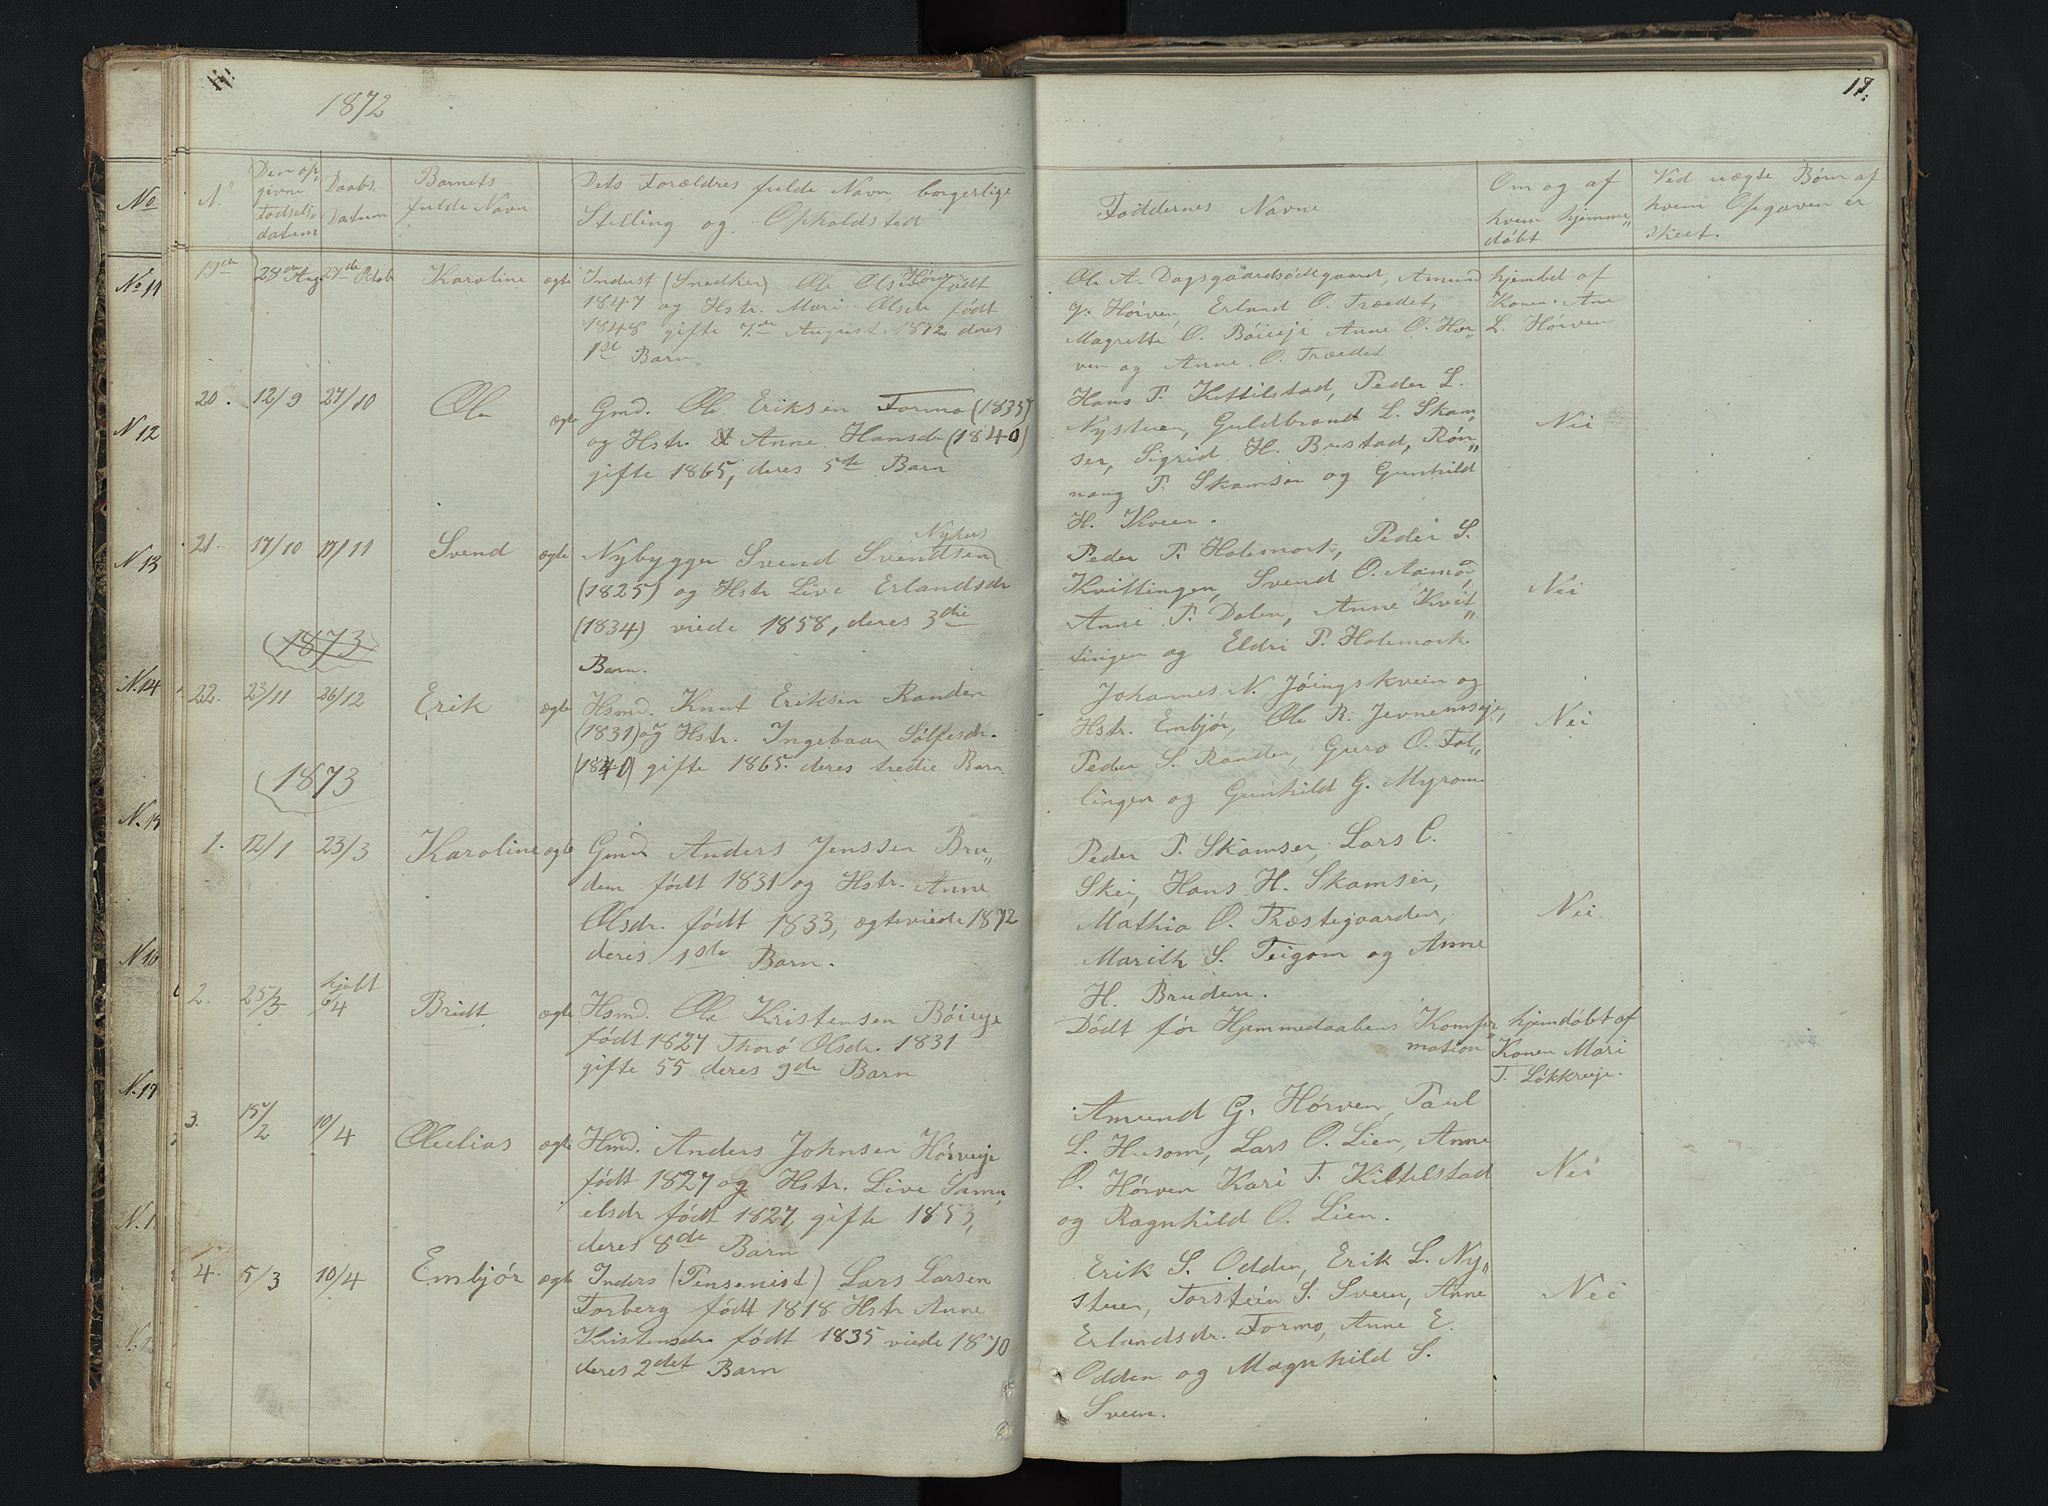 1872
17.
No
N.o
Den op,
givne
Fødsels,
datum
Daabs
Datum
Barnets
fulde Navn
Dets Forældres fulde Navn, borgerlige
Stilling og Opholdsted
Faddernes Navne
Om og af
hvem hjemme,,
døbt
Ved uægte Børn af
hvem Opgaven er
skeet.
No 11
19de
28de Aug
27de Octob
Karoline
ægte
Inderst (Snedker) Ole Olsen Hørven født
1847 og Hstr. Mari Olsdr født
1848 gifte 7de August 1872 deres
1ste Barn
Ole A. Dagsgaardsødegaard, Amund
G. Hørven, Erland O. Træedet,
Magrette O. Bøieeje Anne O. Hør,,
ven og Anne O. Træedet
hjembt af
Konen Ane
L. Hørven
N 12
20.
12/9
27/10
Ole
ægte
Gmd. Ole Eriksen Formo (1835)
og Hstr. Anne Hansdr (1840)
gifte 1865, deres 5te Barn
Hans P. Kittilstad, Peder L.
Nystuen, Guldbrand L. Skam,,
ser, Sigrid H. Bustad, Røn,,
naug P. Skamser og Gunhild
H. Kveen.
Nei
N 13
21.
17/10
17/11
Svend
ægte
Nybygger Svend Svendsen Nyhus
(1825) og Hstr Live Erlandsdr
(1834) viede 1858, deres 3die
Barn.
Peder P. Holemork, Peder S.
Kvittingen, Svend O. Aamo,
Anne P. Dalen, Anne Kvit,,
tingen og Eldri P. Holemork
Nei
1873
N. 14
22.
23/11
26/12
Erik
ægte
Hsmd. Knut Eriksen Randen
(1831) og Hstr. Ingebaar Sølfesdr.
(1840) gifte 1865 deres tredie Barn
Johannes N. Jøingskveen og
Hstr. Embjør, Ole R. Jevnemseje,
Peder S. Randen, Guro O. Fol,,
lingen og Gunhild G. Myrom
Nei
1873
N. 15
1.
12/1
23/3
Karoline
ægte
Gmd Anders Jenssen Bru,,
dem født 1831 og Hstr. Anne
Olsdr. født 1833, ægteviede 1872
deres 1ste Barn.
Peder P. Skamser, Lars C.
Skei, Hans H. Skamser,
Mathia O. Præstegaarden,
Marith S. Teigom og Anne
H. Brudem.
Nei
N. 16
2.
25/3
hjdbt
6/4
Bridt
ægte
Hsmd. Ole Kristensen Bøieeje
født 1827 Thorø Olsdr. 1831
gifte 55 deres 9de Barn
Dødt før Hjemmedaabens Komfir,,
mation
hjemdøbt af
Konen Mari
T. Løkkreeje.
N. 17
3.
15/2
10/4
Oluelias
ægte
Hmd. Anders Johnsen Hørveeje
født 1827 og Hstr. Live Samu,,
elsdr født 1827, gifte 1853,
deres 8de Barn
Amund G. Hørven, Paul
L. Husom, Lars O. Lien, Anne
O. Hørven Kari T. Kittilstad
og Ragnhild O. Lien.
Nei
N. 1
4.
5/3
10/4
Embjør
ægte
Inders (Pensenist) Lars Larsen
Forberg født 1818 Hstr Anne
Kristensdr født 1835 viede 1870
deres 2det Barn
Erik S. Odden, Erik L. Ny,,
stuen, Torstein S. Sveen, Anne
Erlandsdr. Formo, Anne E.
Odden og Magnhild S.
Sveen.
Nei